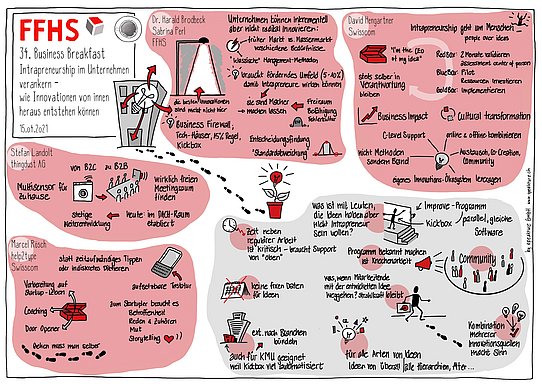 FFHS
34. Business Breakfast
Intrapreneurship im Unternehmen
verankern -
wie Innovationen von innen
heraus entstehen können
15.09.2021
Dr. Harald Brodbeck
Sabrina Perl
FFHS
die besten Innovationen
sind meist nicht hier
Business Firewall,
Tech-Häuser, 15% Regel,
Kickbox
Unternehmen können inkrementell
aber nicht radikal innovieren:
früher Markt vs. Massenmarkt
verschiedene Bedürfnisse.
"klassische" Management-Methoden
braucht förderndes Umfeld (5-10%)
damit Intrapreneure wirken können
sie sind Macher
machen lassen
Freiraum
Befähigung
Fehlerkultur
Entscheidungsfindung
"Standardabweichung"
David Hengartner
Swisscom
Intrapreneurship geht um Menschen
people over ideas
"I'm the CEO
of my idea"
stets selber in
Verantwortung
bleiben
RedBox: 2 Monate validieren
assessment center of person
BlueBox: Pilot
Ressourcen investieren
GoldBox: Implementieren
Business Impact
Cultural transformation
C-level Support
online & offline kombinieren
nicht Methoden
sondern Brand
Austausch, Co-Creation,
Community
eigenes Innovations-Ökosystem erzeugen
Stefan Landolt
thingdust AG
von B2C zu B2B
Multisensor für
zuhause
wirklich freien
Meetingraum
finden
stetige
Weiterentwicklung
heute im DACH-Raum
etabliert
Marcel Roesch
help2type
Swisscom
statt zeitaufwändiges Tippen
oder indiskretes Diktieren
aufsetzbare Tastatur
Vorbereitung auf
Startup-Leben
Coaching
Door Opener
zum Startup braucht es
Betroffenheit
Reden & Zuhören
Mut
Storytelling
Gehen muss man selber
Zeit neben
regulärer Arbeit
ist kritisch - braucht Support
von "oben"
keine fixen Daten
für Ideen
ext. nach Branchen
bündeln
auch für KMU geeignet
weil Kickbox viel automatisiert
was ist mit Leuten,
die Ideen haben aber
nicht Intrapreneur
sein wollen?
Improve-Programm
Kickbox
parallel, gleiche
Software
Programm bekannt machen
ist Knochenarbeit
Community
was, wenn Mitarbeitende
mit der entwickelten Idee
weggehen? Strahlkraft bleibt
für alle Arten von Ideen
Ideen von überall alle Hierarchien, Alter...
Kombination
mehrerer
Innovationsquellen
macht Sinn